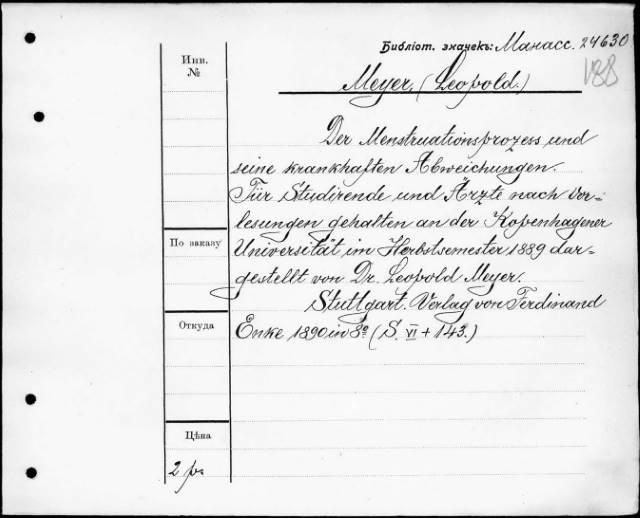 Библіот. значекъ: Манасс. 24630
188
Инв.
№
Meyer, (Leopold.)
Der Menstruationsprozess und
seine krankhaften Abweichungen.
Für Studirende und Ärzte nach Vor-
lesungen gehalten an der Kopenhagener
Universität im Herbstsemester 1889 dar-
gestellt von Dr. Leopold Meyer.
Stuttgart. Verlag von Ferdinand
Enke 1890 in 8º (S. VI + 143.)
По заказу
Откуда
Цѣна
2